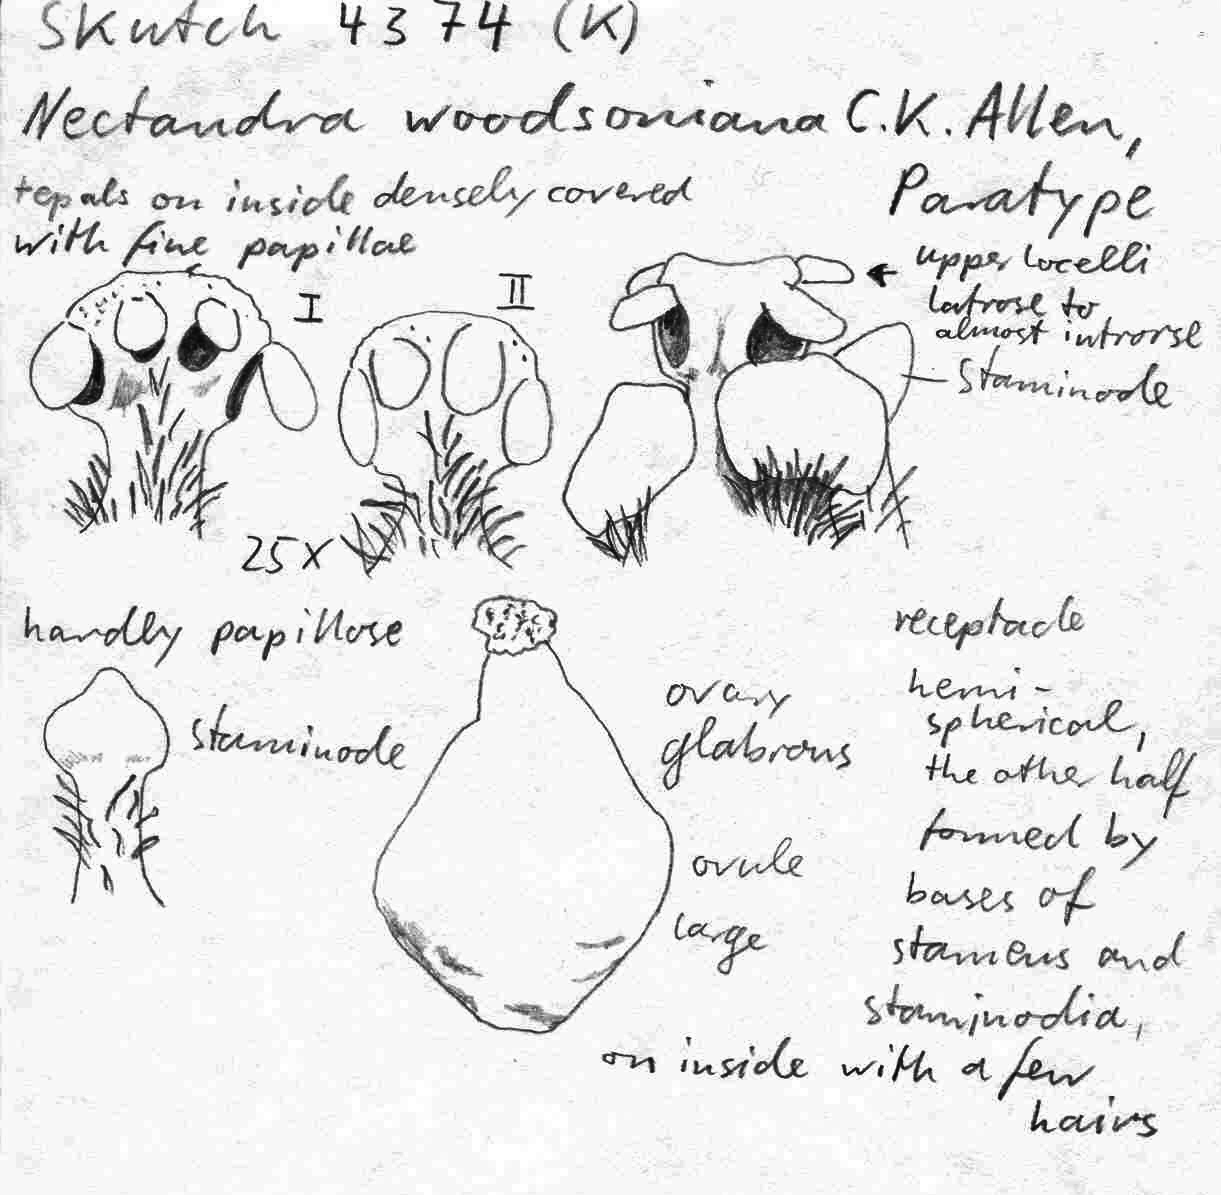 Skutch 4374 (K)
Nectandra woodsoniana C.K. Allen,
Paratype
tepals on inside densely covered
with fine papillae
I
II
upper locelli
latrose to
almost introrse
staminode
25x
hardly papillose
staminode
ovary
glabrous
ovule
large
receptacle
hemi-
spherical,
the other half
formed by
bases of
stamens and
staminodia,
on inside with a few
hairs